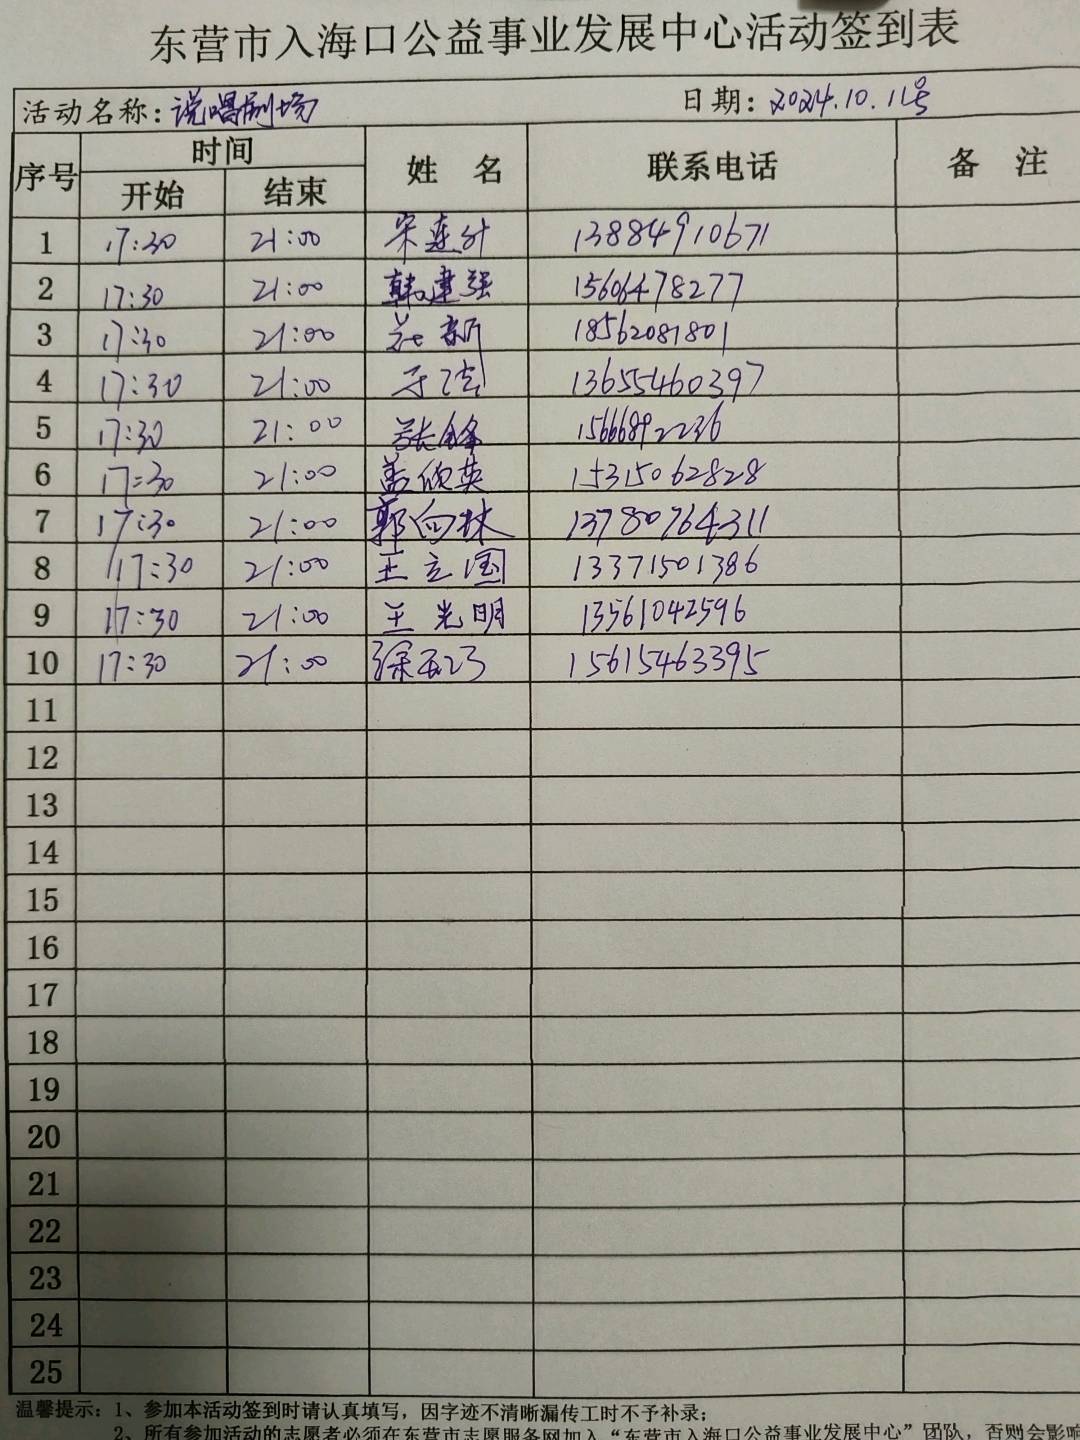 东营市入海口公益事业发展中心活动签到表
活动名称:说唱剧场 日期:2024.10.11号
序号 时间 姓名 联系电话 备注
开始 结束
1 17:30 21:00 宋连升 13884910671
2 17:30 21:00 韩建强 15606478277
3 17:30 21:00 新 18562081801
4 17:30 21:00 于 13655460397
5 17:30 21:00 张锋 15666892236
6 17:30 21:00 盖欣英 15315062828
7 17:30 21:00 郭向林 13780764311
8 17:30 21:00 王立国 13371501386
9 17:30 21:00 王光明 13561042596
10 17:30 21:00 徐玉 15615463395
11
12
13
14
15
16
17
18
19
20
21
22
23
24
25
温馨提示:1、参加本活动签到时请认真填写,因字迹不清晰漏传工时不予补录;
2、所有参加活动的志愿者必须在东营市志愿服务网加入“东营市入海口公益事业发展中心”团队,否则会影响